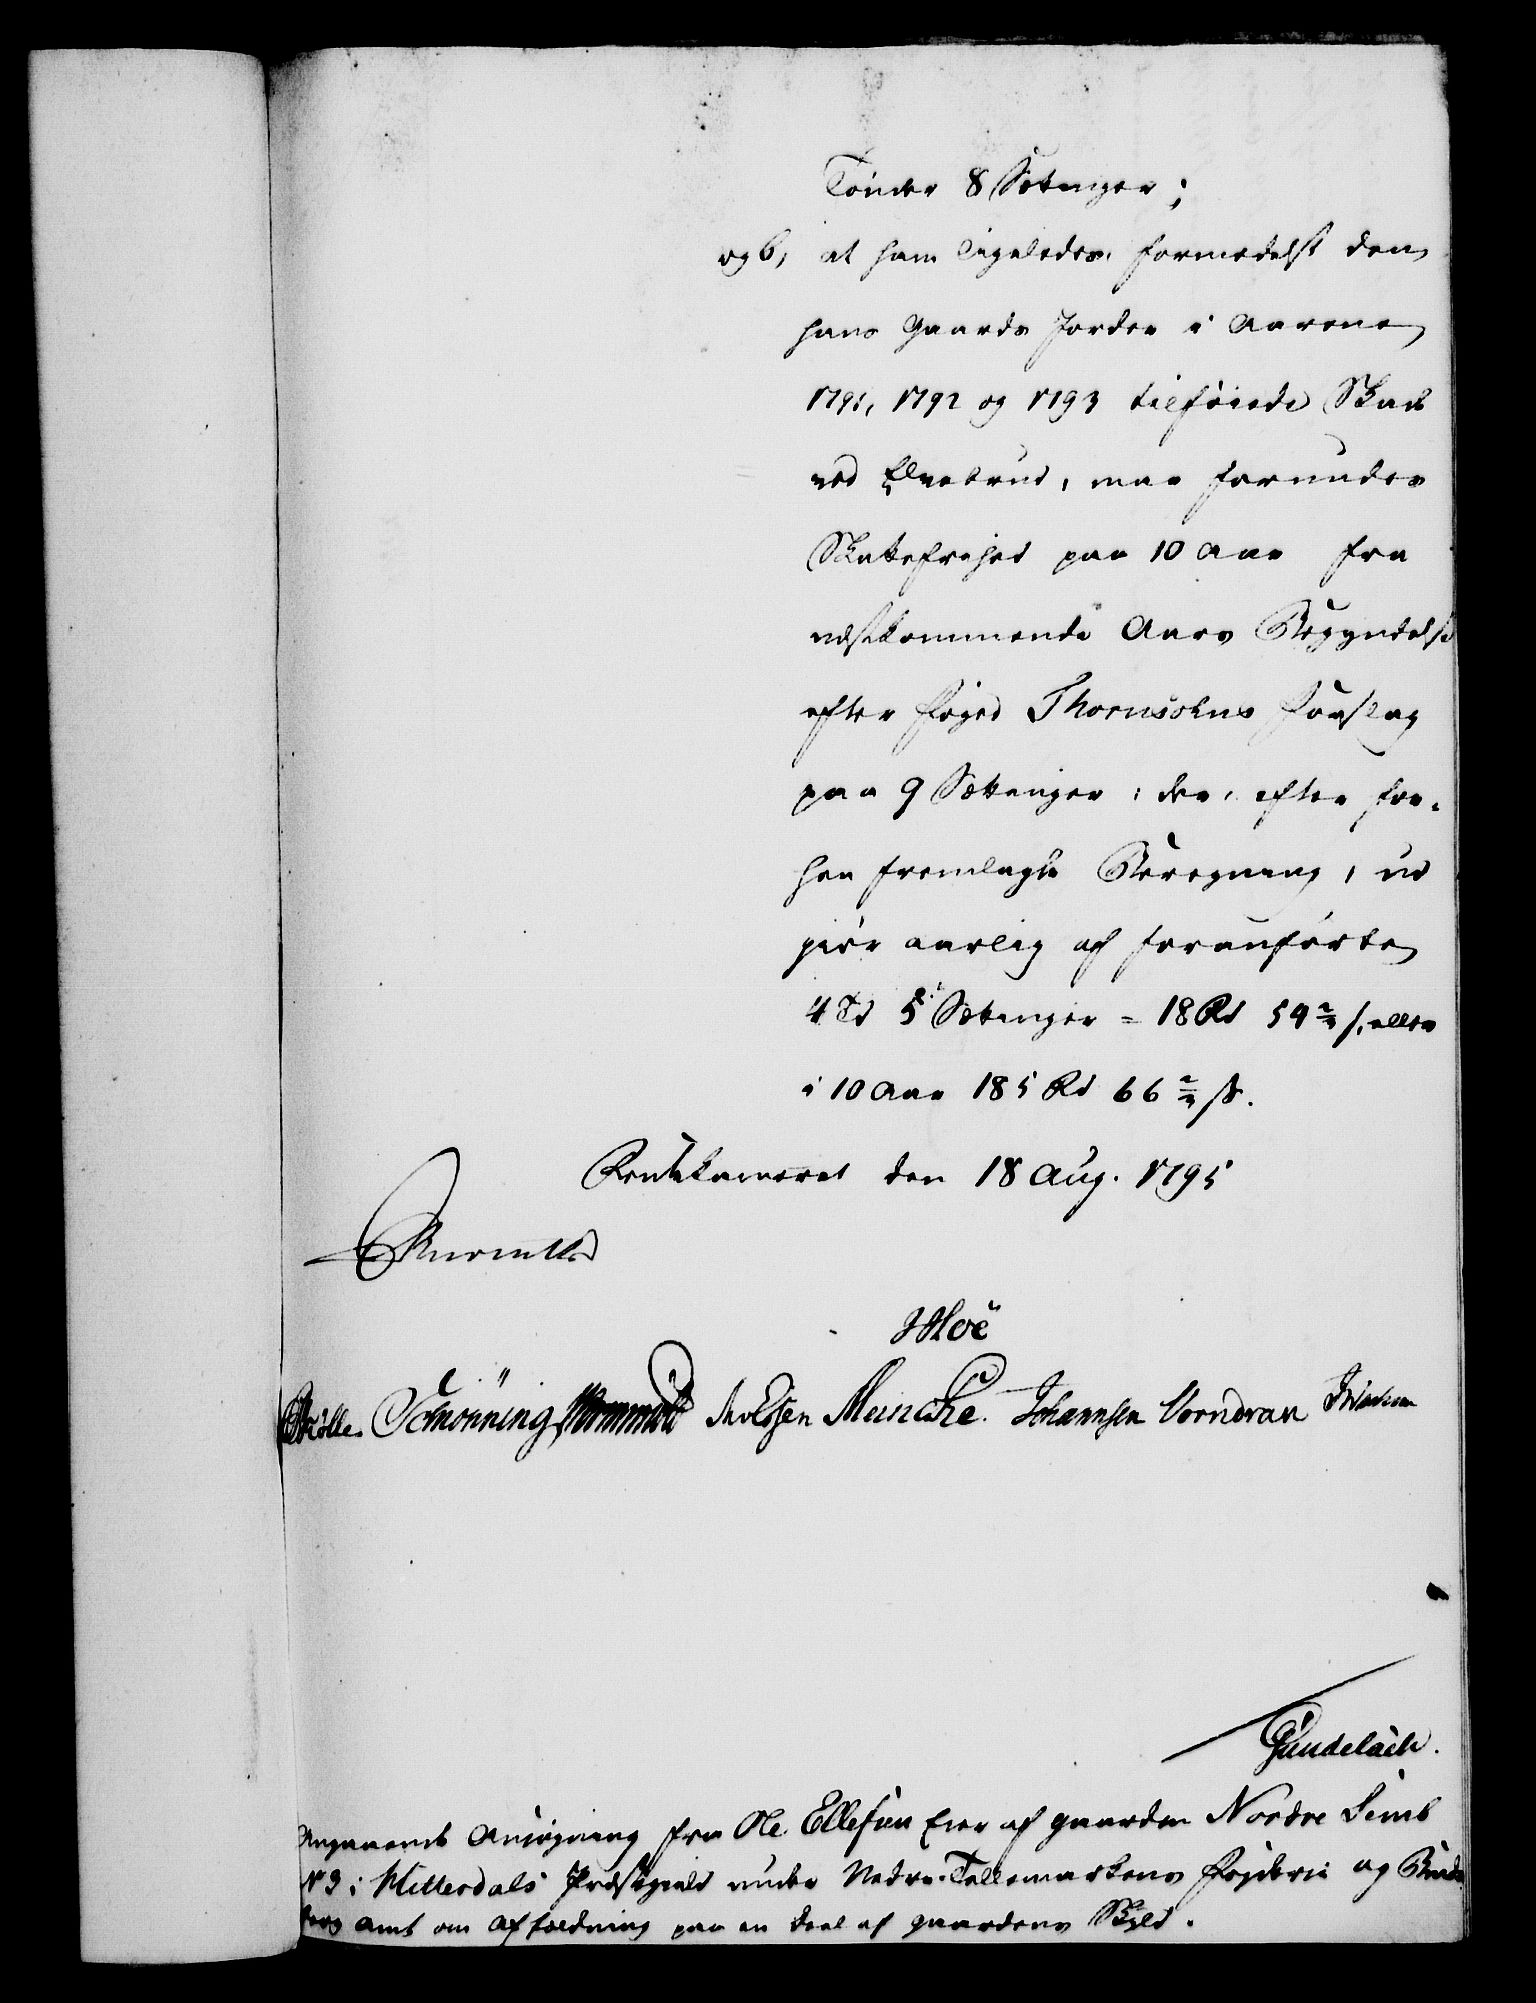 Tönder 8 Sætinger;
og b, at ham ligeledes, formedelst den
hans Gaards Jorder i Aarene
1791, 1792 og 1793 tilföiede Skade
ved Elvebrud, maa forundes
Skattefrihed paa 10 Aar fra
nestkommende Aars Begyndelse
efter Foged Thornsohns Forslag
paa 9 Sættinger; der, efter for-
hen fremlagte Beregning, ud
giör aarlig af foranförte
4 Td 5 Sætinger = 18 Rd 54 2/3 s, eller
i 10 Aar 185 Rd 66 2/3 s.
Rentekammeret den 18 Aug. 1795
Reventlow
JHoë
Schönning Wormskiold Meincke. Johannsen Vorndran
Gundelach.
Angaaende Ansögning fra Ole Ellefsen Eier af gaarden Nordre Semb
N 3 i Hitterdals Præstegield under Nedre-Tellemarkens Fogderie og Brads
berg Amt om Affældning paa en Deel af gaardens Skyld.